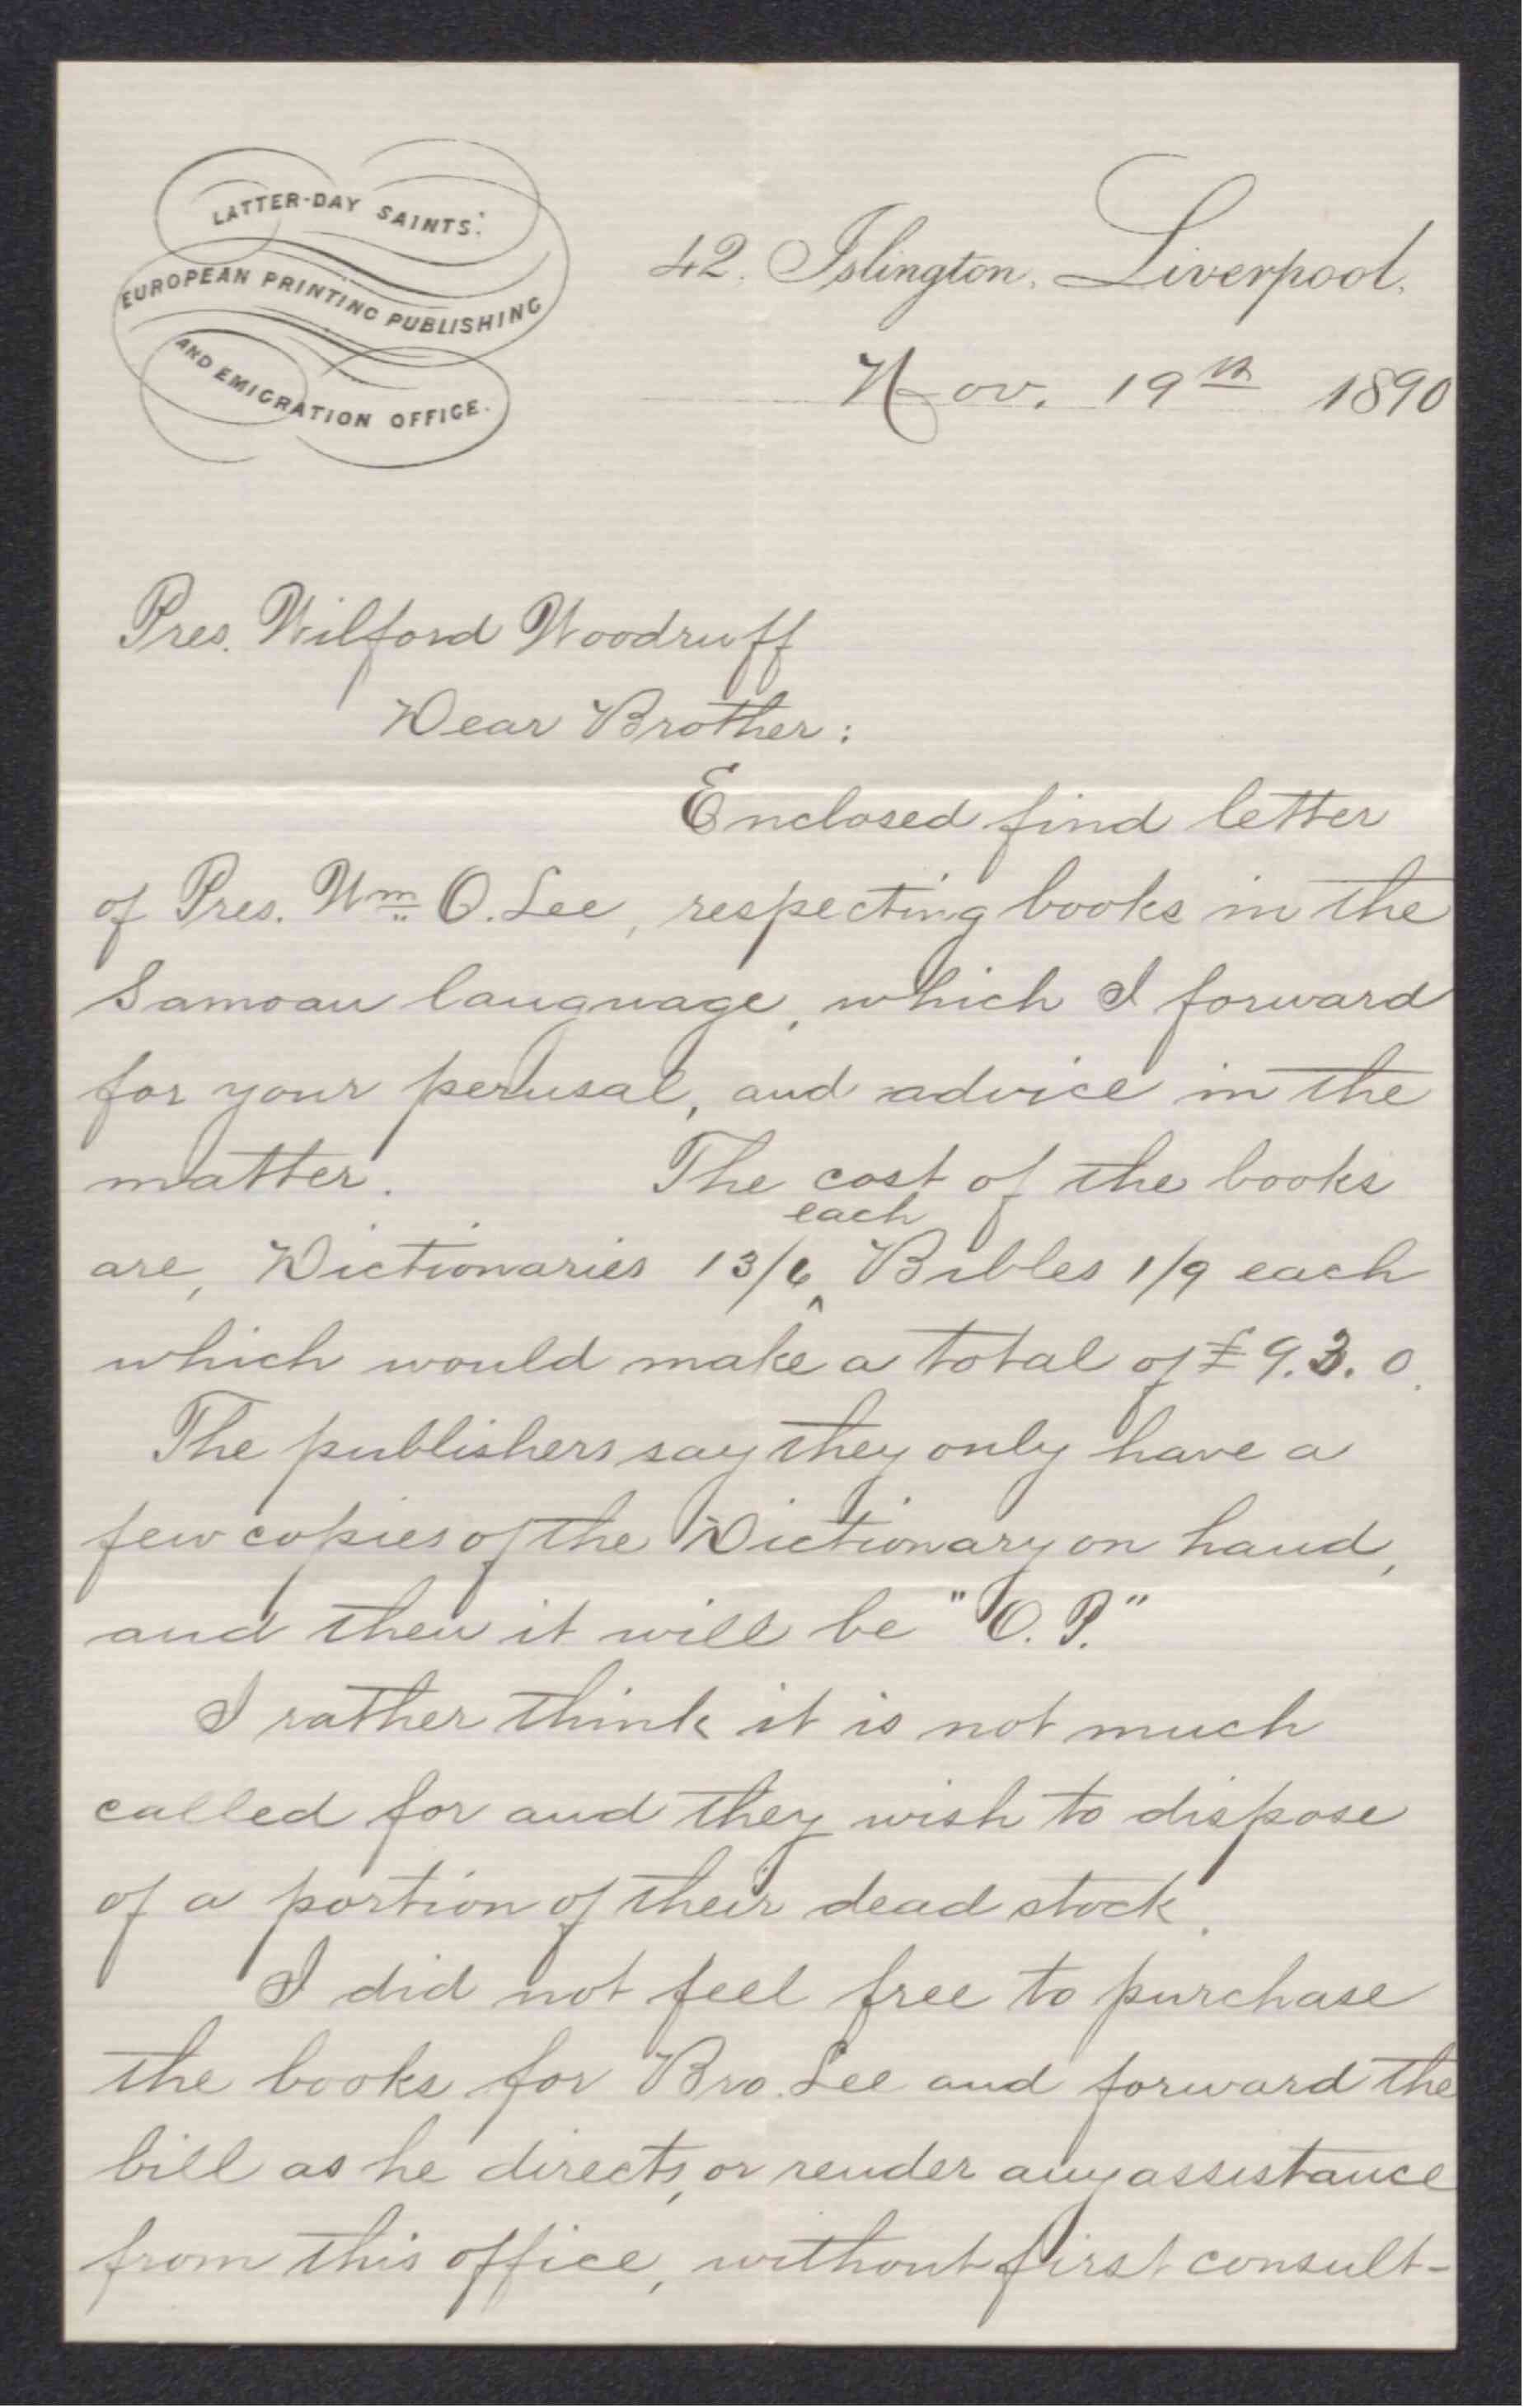 LATTER-DAY SAINTS'
EUROPEAN PRINTING PUBLISHING
AND EMIGRATION OFFICE.
42. Islington, Liverpool,
Nov. 19th 1890
Pres. Wilford Woodruff
Dear Brother:
Enclosed find letter
of Pres. Wm. O. Lee, respecting books in the
Samoan language, which I forward
for your perusal, and advice in the
matter. The cost of the books
each
are, Dictionaries 13/6 ^ Bibles 1/9 each
which would make a total of £9.3.0.
The publishers say they only have a
few copies of the Dictionary on hand,
and then it will be "O.P."
I rather think it is not much
called for and they wish to dispose
of a portion of their dead stock.
I did not feel free to purchase
the books for Bro. Lee and forward the
bill as he directs, or render any assistance
from this office, without first consult-